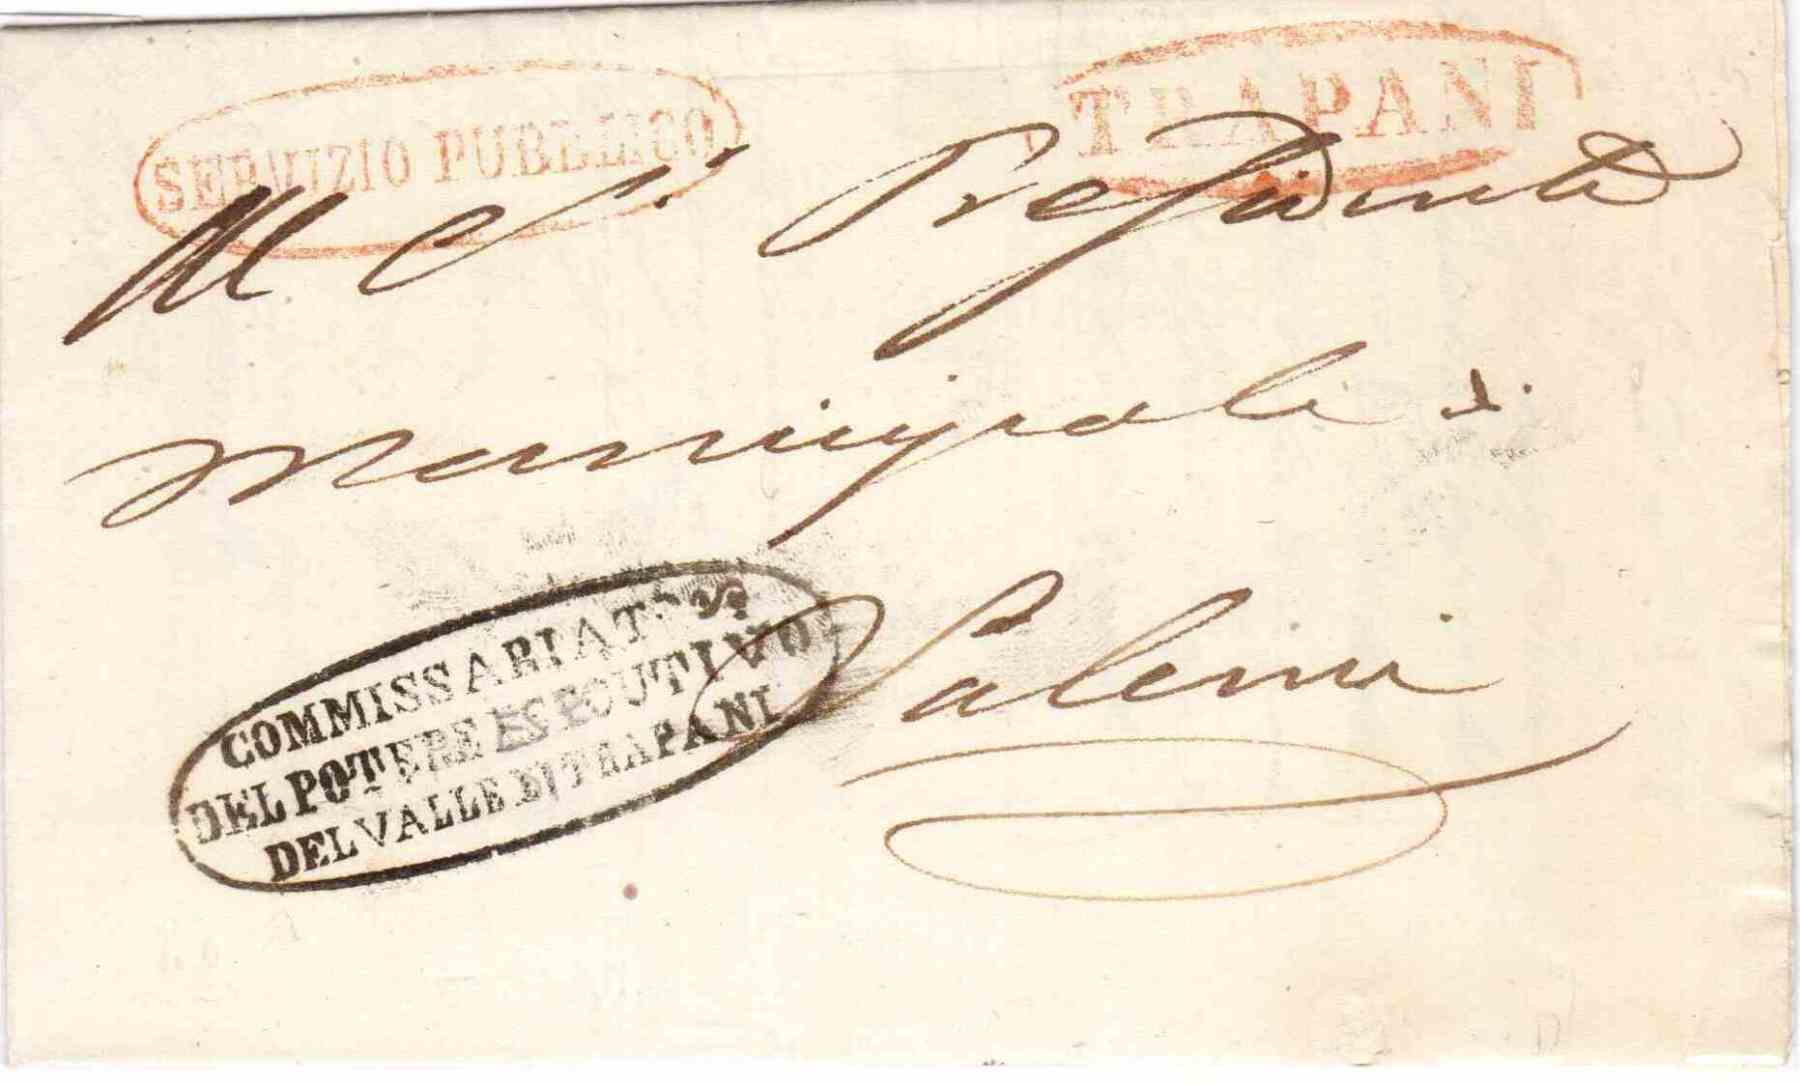 SERVIZIO PUBBLICO
TRAPANI
Al Sr. Presidente
Municipale di
Salemi
COMMISSARIATO
DEL POTERE ESECUTIVO
DEL VALLE DI TRAPANI